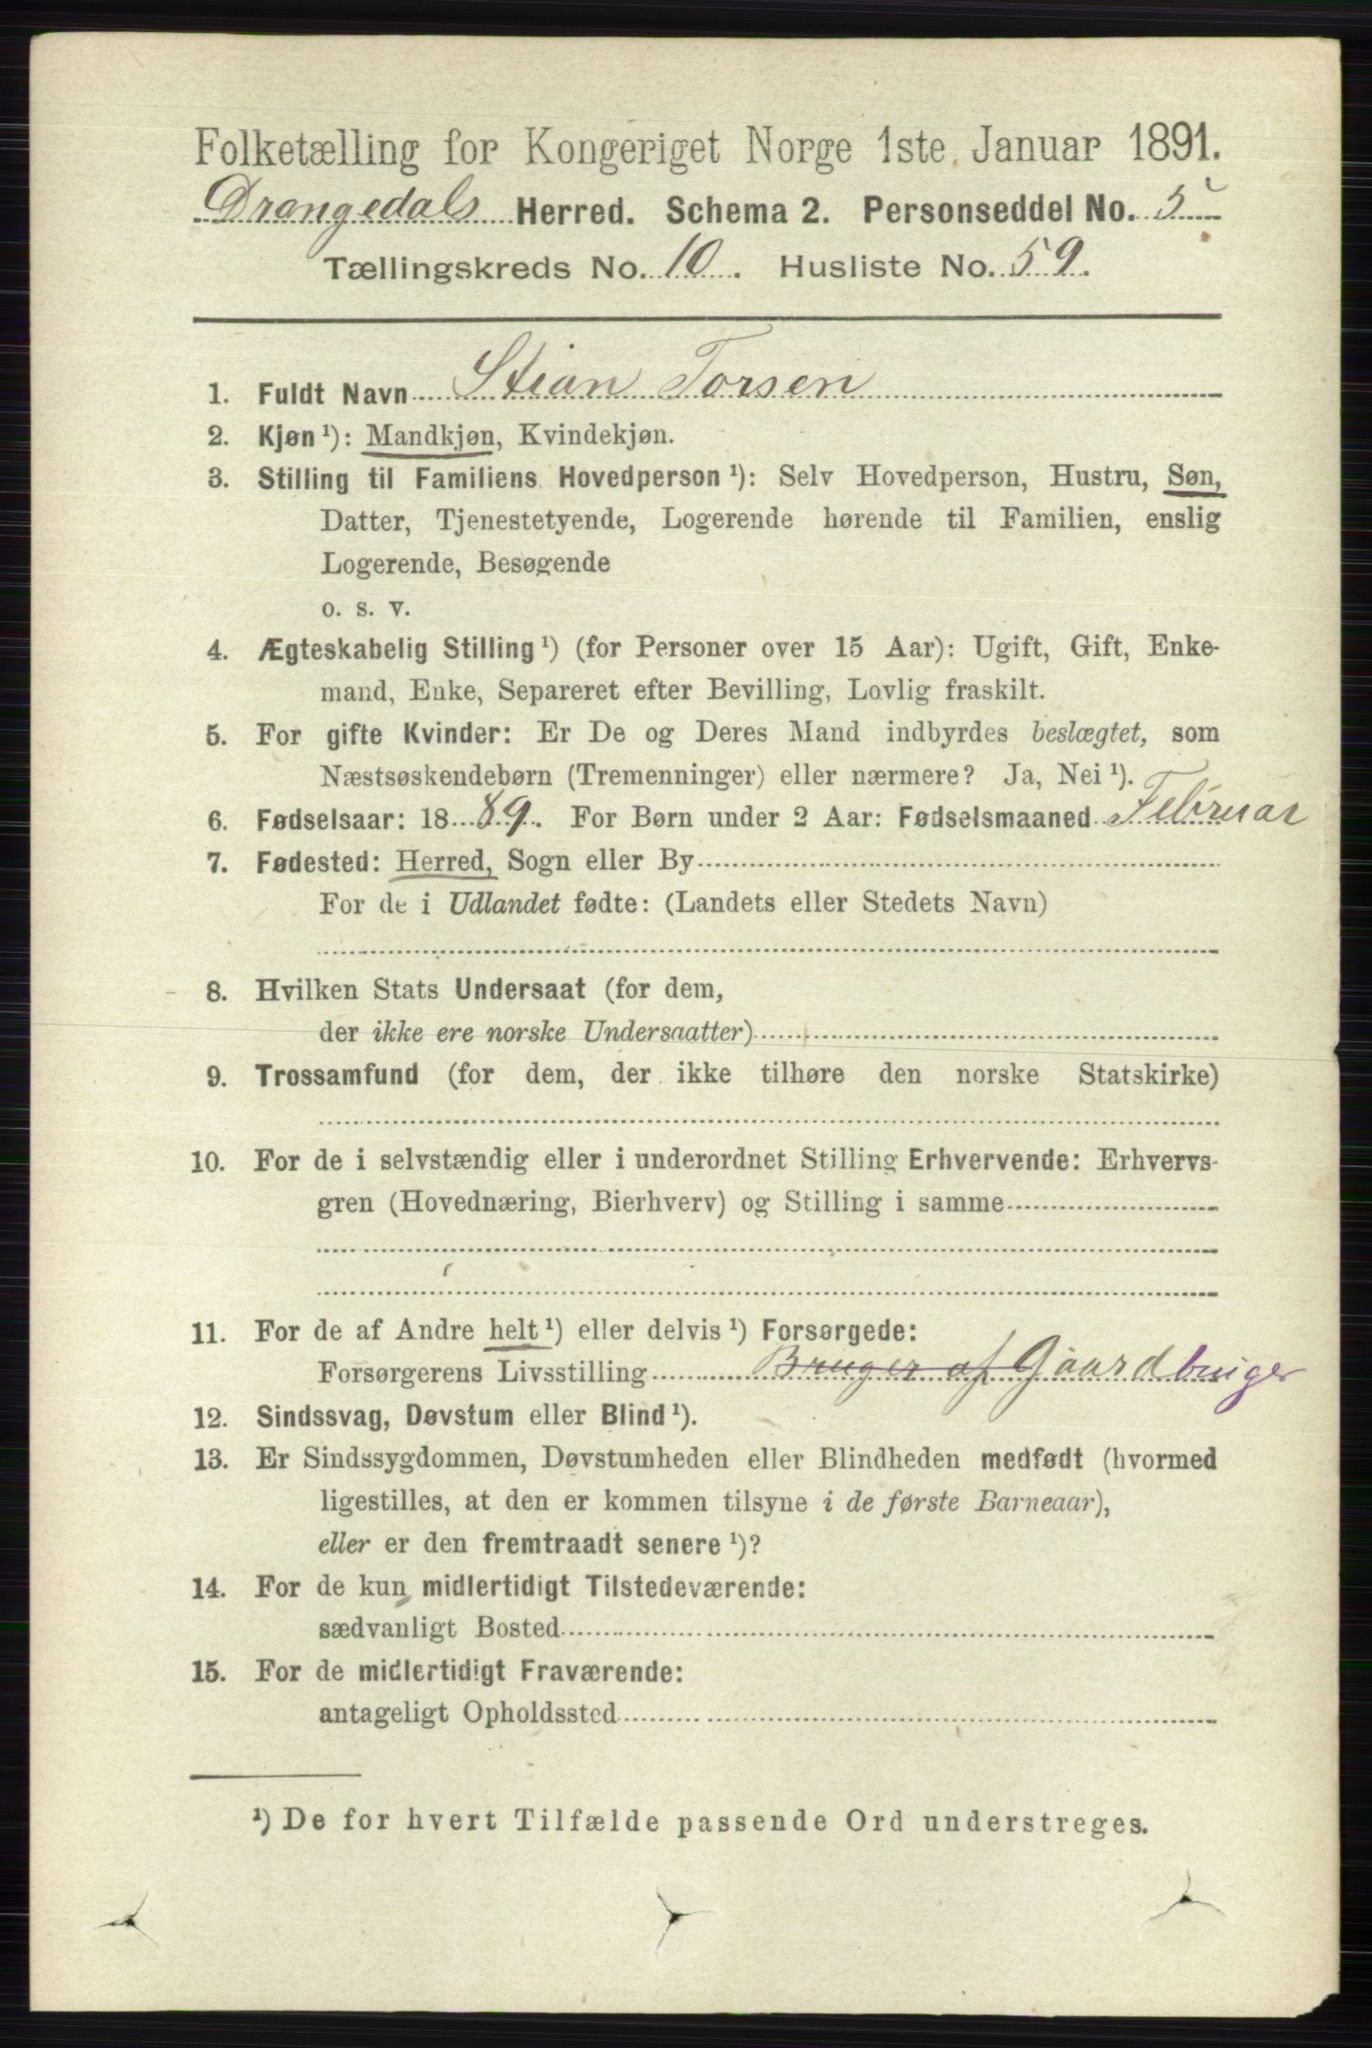 Folketælling for Kongeriget Norge 1ste Januar 1891.
Drangedals Herred. Schema 2. Personseddel No. 5
Tællingskreds No. 10. Husliste No. 59.
1. Fuldt Navn Stian Torsen
2. Kjøn ¹): Mandkjøn, Kvindekjøn.
3. Stilling til Familiens Hovedperson ¹): Selv Hovedperson, Hustru, Søn,
Datter, Tjenestetyende, Logerende hørende til Familien, enslig
Logerende, Besøgende
o. s. v.
4. Ægteskabelig Stilling ¹) (for Personer over 15 Aar): Ugift, Gift, Enke-
mand, Enke, Separeret efter Bevilling, Lovlig fraskilt.
5. For gifte Kvinder: Er De og Deres Mand indbyrdes beslægtet, som
Næstsøskendebørn (Tremenninger) eller nærmere? Ja, Nei ¹).
6. Fødselsaar: 1889. For Børn under 2 Aar: Fødselsmaaned Februar
7. Fødested: Herred, Sogn eller By
For de i Udlandet fødte: (Landets eller Stedets Navn)
8. Hvilken Stats Undersaat (for dem,
der ikke ere norske Undersaatter)
9. Trossamfund (for dem, der ikke tilhøre den norske Statskirke)
10. For de i selvstændig eller i underordnet Stilling Erhvervende: Erhvervs-
gren (Hovednæring, Bierhverv) og Stilling i samme
11. For de af Andre helt ¹) eller delvis ¹) Forsørgede:
Forsørgerens Livsstilling Bruger af Gaardbruger
12. Sindssvag, Døvstum eller Blind ¹).
13. Er Sindssygdommen, Døvstumheden eller Blindheden medfødt (hvormed
ligestilles, at den er kommen tilsyne i de første Barneaar),
eller er den fremtraadt senere ¹)?
14. For de kun midlertidigt Tilstedeværende:
sædvanligt Bosted
15. For de midlertidigt Fraværende:
antageligt Opholdssted
¹) De for hvert Tilfælde passende Ord understreges.